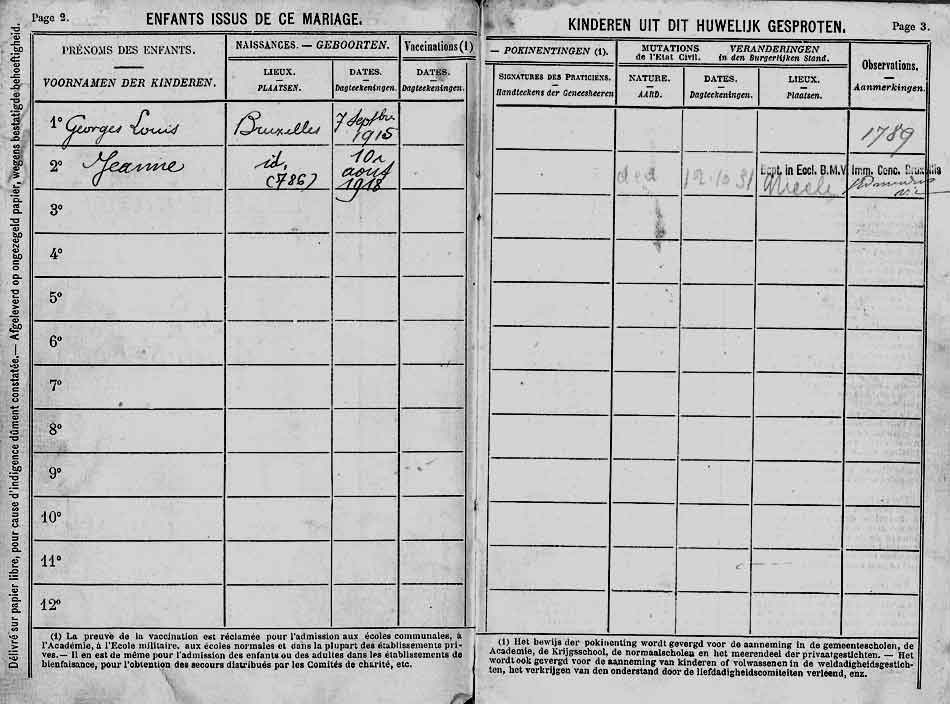 Page 2.
ENFANTS ISSUS DE CE MARIAGE.
PRÉNOMS DES ENFANTS.
VOORNAMEN DER KINDEREN.
NAISSANCES. — GEBOORTEN.
LIEUX.
PLAATSEN.
DATES.
Dagteekeningen.
Vaccinations (1)
DATES.
Dagteekeningen.
1º Georges Louis
Bruxelles
7 Septbre
1915
2º Jeanne
id.
(786)
10
août
1918
3º
4º
5º
6º
7º
8º
9º
10º
11º
12º
(1) La preuve de la vaccination est réclamée pour l'admission aux écoles communales, à
l'Académie, à l'Ecole militaire, aux écoles normales et dans la plupart des établissements pri-
vés. — Il en est de même pour l'admission des enfants ou des adultes dans les établissements de
bienfaisance, pour l'obtention des secours distribués par les Comités de charité, etc.
Délivré sur papier libre, pour cause d'indigence dûment constatée. — Afgeleverd op ongezegeld papier, wegens bestatigde behoeftigheid.
KINDEREN UIT DIT HUWELIJK GESPROTEN.
Page 3.
— POKINENTINGEN (1).
SIGNATURES DES PRATICIENS.
Handteekens der Geneesheeren
MUTATIONS
de l'Etat Civil.
VERANDERINGEN
in den Burgerlijken Stand.
NATURE.
AARD.
DATES.
Dagteekeningen.
LIEUX.
Plaatsen.
Observations.
Aanmerkingen.
1789
ded
12.10.31
Bapt. in Eccl. B.M.V. Imm. Conc. Bruxellis
Uccle
(1) Het bewijs der pokinenting wordt gevergd voor de aanneming in de gemeentescholen, de
Academie, de Krijgsschool, de normaalscholen en het meerendeel der privaatgestichten. — Het
wordt ook gevergd voor de aanneming van kinderen of volwassenen in de weldadigheidsgestich-
ten, het verkrijgen van den onderstand door de liefdadigheidscomiteiten verleend, enz.